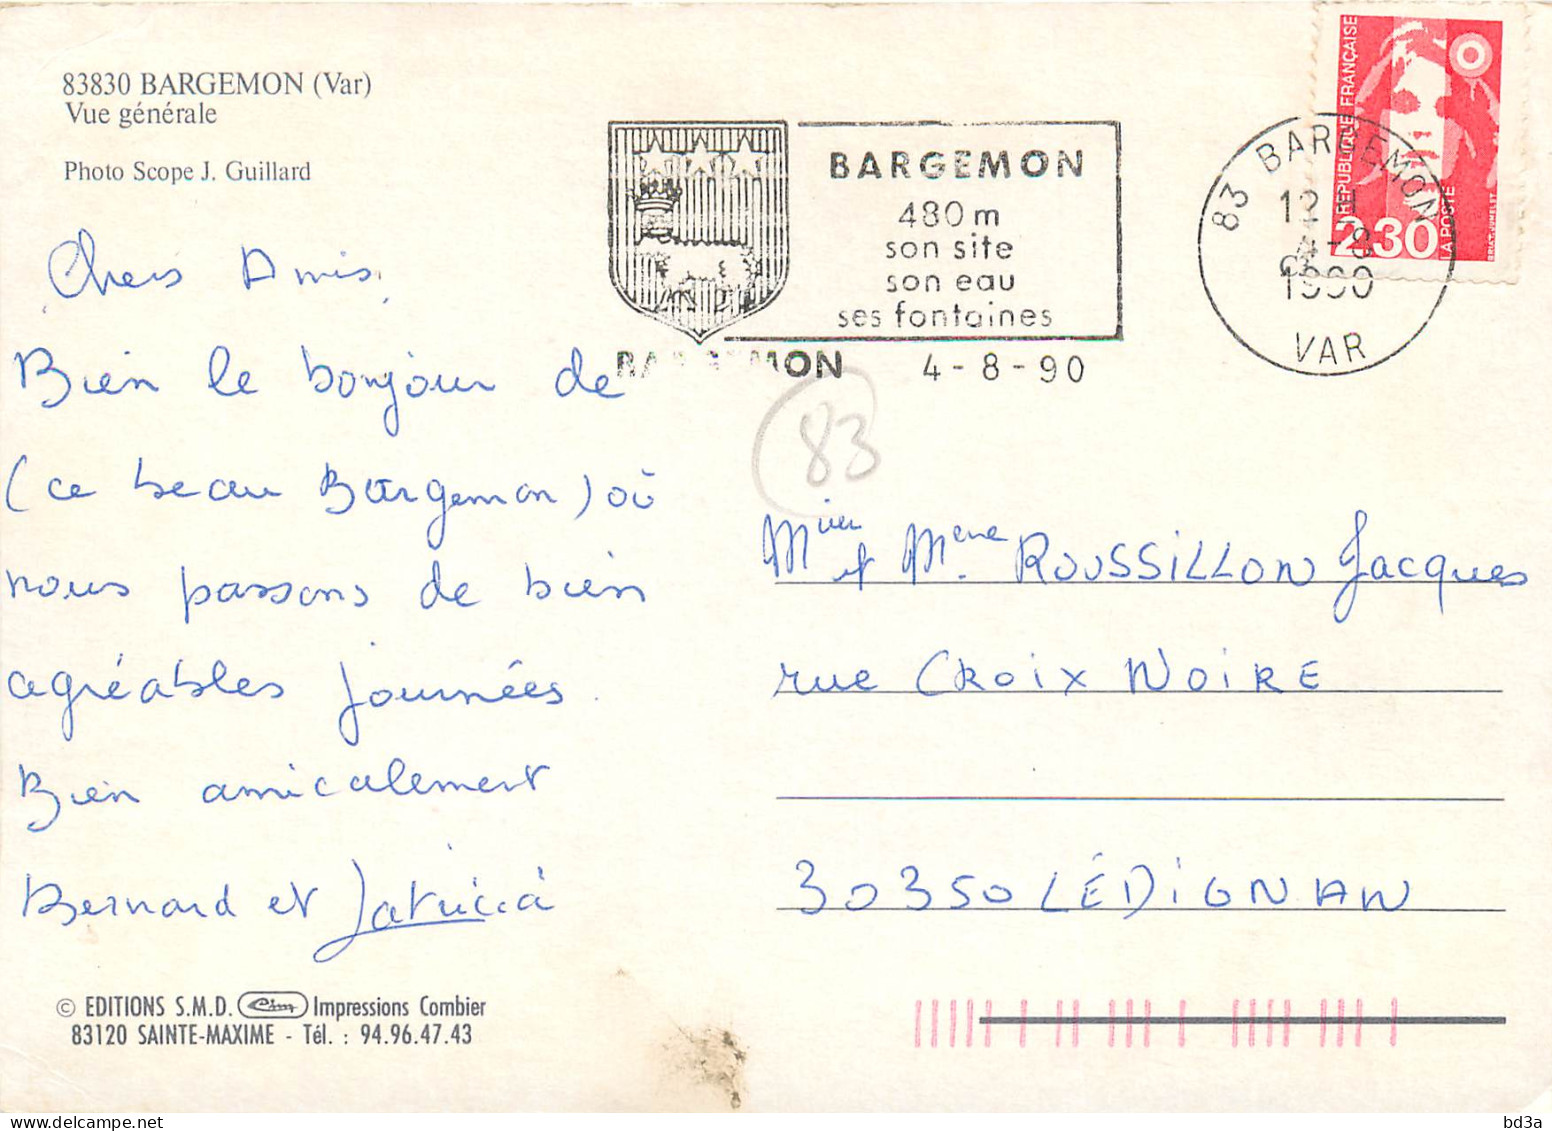 83830 BARGEMON (Var)
Vue générale
Photo Scope J. Guillard
Chers Amis,
Bien le bonjour de
(ce beau Bargemon) où
nous passons de bien
agréables journées.
Bien amicalement
Bernard et Patricia
© EDITIONS S.M.D. Cim Impressions Combier
83120 SAINTE-MAXIME - Tél. : 94.96.47.43
BARGEMON
480 m
son site
son eau
ses fontaines
BARGEMON 4-8-90
83 BARGEMON
12 H
4-8
1990
VAR
REPUBLIQUE FRANÇAISE
2,30
LA POSTE
83
et Mme ROUSSILLON Jacques
rue CROIX NOIRE
30350 LÉDIGNAN
bd3a